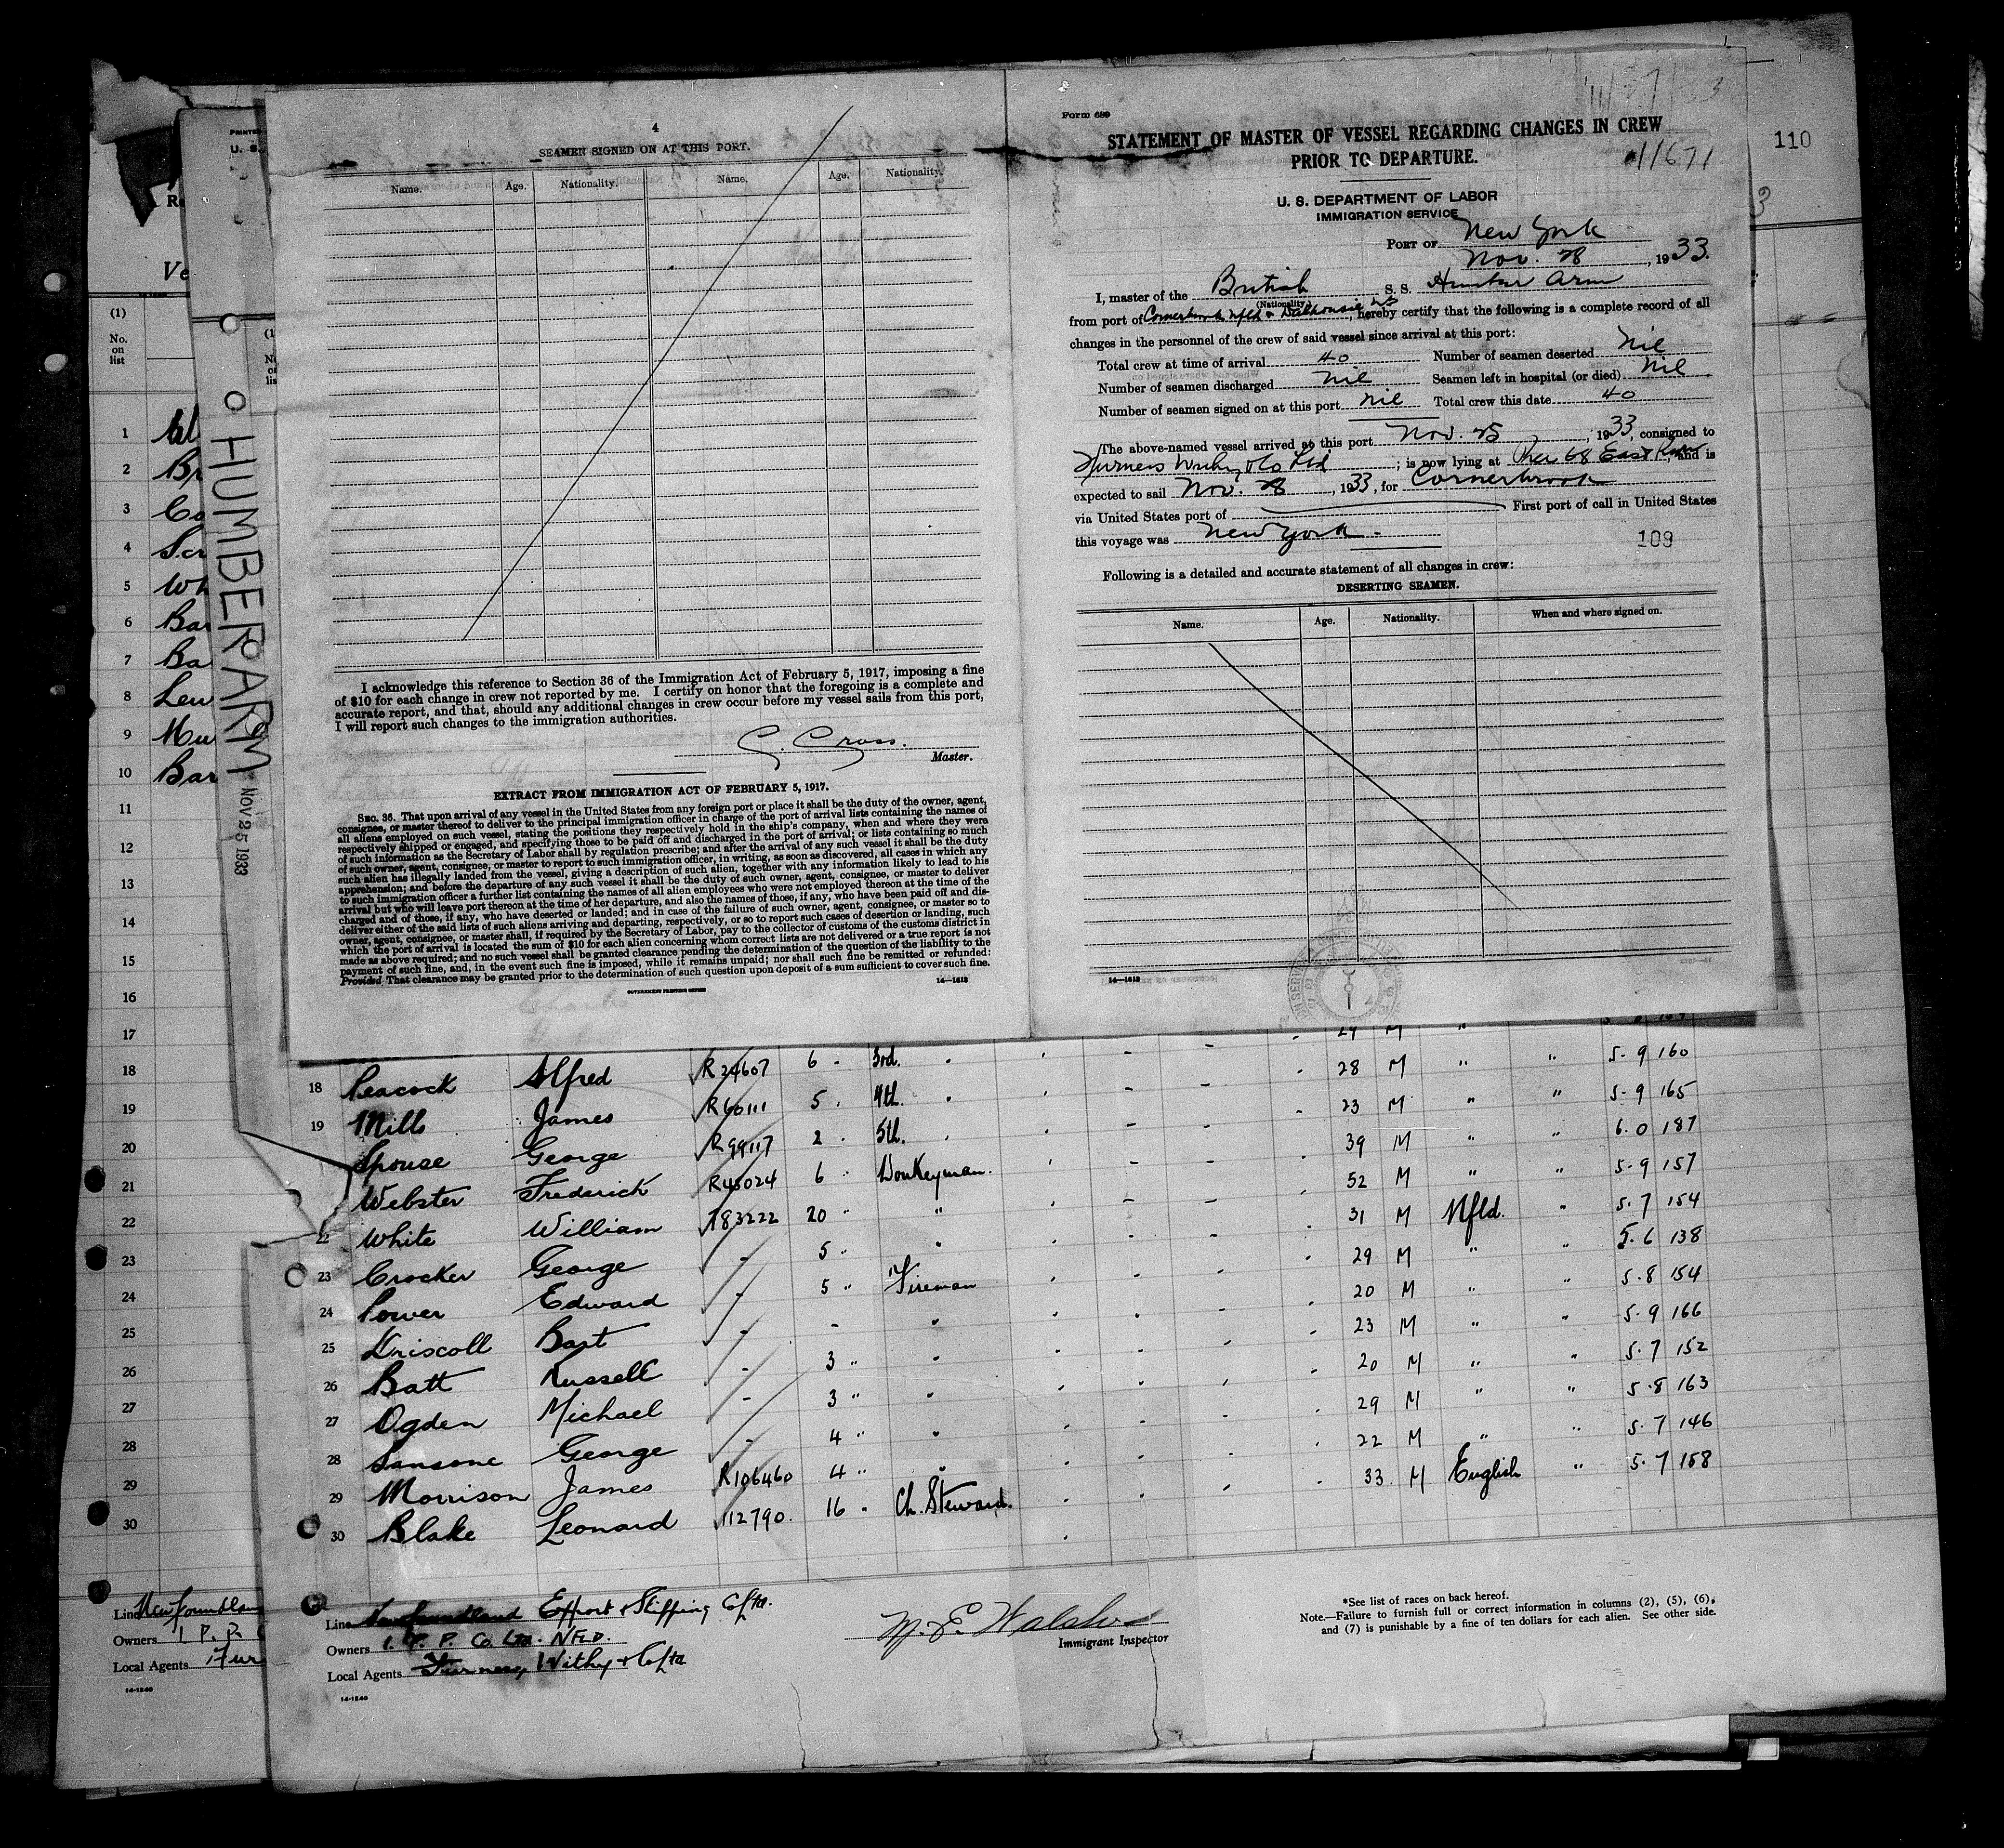 110
PRINTED
U. S.
Re
Ve
(1)
No.
on
list
1
2 Br
3 Co
4 Scr
5 Wh
6 Bar
7 Ba
8 Lew
9 Mu
10 Bar
11
12
13
14
15
16
17
18
19
20
21
22
23
24
25
26
27
28
29
30
Line Newfoundlan
Owners I. P. P.
Local Agents Fur
14-1240
HUMBER ARM NOV 25 1933
4
SEAMEN SIGNED ON AT THIS PORT.
Name. Age. Nationality. Name. Age. Nationality.
I acknowledge this reference to Section 36 of the Immigration Act of February 5, 1917, imposing a fine
of $10 for each change in crew not reported by me. I certify on honor that the foregoing is a complete and
accurate report, and that, should any additional changes in crew occur before my vessel sails from this port,
I will report such changes to the immigration authorities.
G. Cross.
Master.
EXTRACT FROM IMMIGRATION ACT OF FEBRUARY 5, 1917.
SEC. 36. That upon arrival of any vessel in the United States from any foreign port or place it shall be the duty of the owner, agent,
consignee, or master thereof to deliver to the principal immigration officer in charge of the port of arrival lists containing the names of
all aliens employed on such vessel, stating the positions they respectively hold in the ship's company, when and where they were
respectively shipped or engaged, and specifying those to be paid off and discharged in the port of arrival; or lists containing so much
of such information as the Secretary of Labor shall by regulation prescribe; and after the arrival of any such vessel it shall be the duty
of such owner, agent, consignee, or master to report to such immigration officer, in writing, as soon as discovered, all cases in which any
such alien has illegally landed from the vessel, giving a description of such alien, together with any information likely to lead to his
apprehension; and before the departure of any such vessel it shall be the duty of such owner, agent, consignee, or master to deliver
to such immigration officer a further list containing the names of all alien employees who were not employed thereon at the time of the
arrival but who will leave port thereon at the time of her departure, and also the names of those, if any, who have been paid off and dis-
charged and of those, if any, who have deserted or landed; and in case of the failure of such owner, agent, consignee, or master so to
deliver either of the said lists of such aliens arriving and departing, respectively, or so to report such cases of desertion or landing, such
owner, agent, consignee, or master shall, if required by the Secretary of Labor, pay to the collector of customs of the customs district in
which the port of arrival is located the sum of $10 for each alien concerning whom correct lists are not delivered or a true report is not
made as above required; and no such vessel shall be granted clearance pending the determination of the question of the liability to the
payment of such fine, and, in the event such fine is imposed, while it remains unpaid; nor shall such fine be remitted or refunded:
Provided, That clearance may be granted prior to the determination of such question upon deposit of a sum sufficient to cover such fine.
GOVERNMENT PRINTING OFFICE 14—1613
Form 689
STATEMENT OF MASTER OF VESSEL REGARDING CHANGES IN CREW
PRIOR TO DEPARTURE.
11671
U. S. DEPARTMENT OF LABOR
IMMIGRATION SERVICE
PORT OF New York
Nov. 28, 1933.
I, master of the British S. S. Humber Arm
(Nationality)
from port of Cornerbrook Nfld & Dalhousie NB, hereby certify that the following is a complete record of all
changes in the personnel of the crew of said vessel since arrival at this port:
Total crew at time of arrival 40 Number of seamen deserted nil
Number of seamen discharged nil Seamen left in hospital (or died) nil
Number of seamen signed on at this port nil Total crew this date 40
The above-named vessel arrived at this port Nov. 25, 1933, consigned to
Furness Withy & Co Ltd; is now lying at Pier 68 East River, and is
expected to sail Nov. 28, 1933, for Cornerbrook
via United States port of First port of call in United States
this voyage was New York.
109
Following is a detailed and accurate statement of all changes in crew:
DESERTING SEAMEN.
Name. Age. Nationality. When and where signed on.
14—1613
18 Peacock Alfred R24607 6 " 3rd. 28 M " " 5-9 160
19 Mills James R60111 5 " 4th. 23 M " " 5-9 165
Spouse George R99117 2 " 5th. 39 M " " 6.0 187
Webster Frederick R45024 6 " Donkeyman. 52 M " " 5-9 157
22 White William 783222 20 " " 31 M Nfld. " 5.7 154
23 Crocker George - 5 " " 29 M " " 5.6 138
24 Power Edward - 5 " Fireman 20 M " " 5.8 154
25 Driscoll Bart - - " 23 M " " 5.9 166
26 Batt Russell - 3 " " 20 M " " 5.7 152
27 Ogden Michael - 3 " " 29 M " " 5.8 163
28 Sansone George - 4 " " 22 M " " 5.7 146
29 Morrison James R106460 4 " " 33. M English " 5.7 158
30 Blake Leonard 112790. 16 " Ch. Steward.
Line Newfoundland Export & Shipping Co Ltd.
Owners I. P. P. Co. Ltd. NFLD.
Local Agents Furness, Withy & Co Ltd
14-1240
M. E. Walsh
Immigrant Inspector
*See list of races on back hereof.
Note.—Failure to furnish full or correct information in columns (2), (5), (6),
and (7) is punishable by a fine of ten dollars for each alien. See other side.